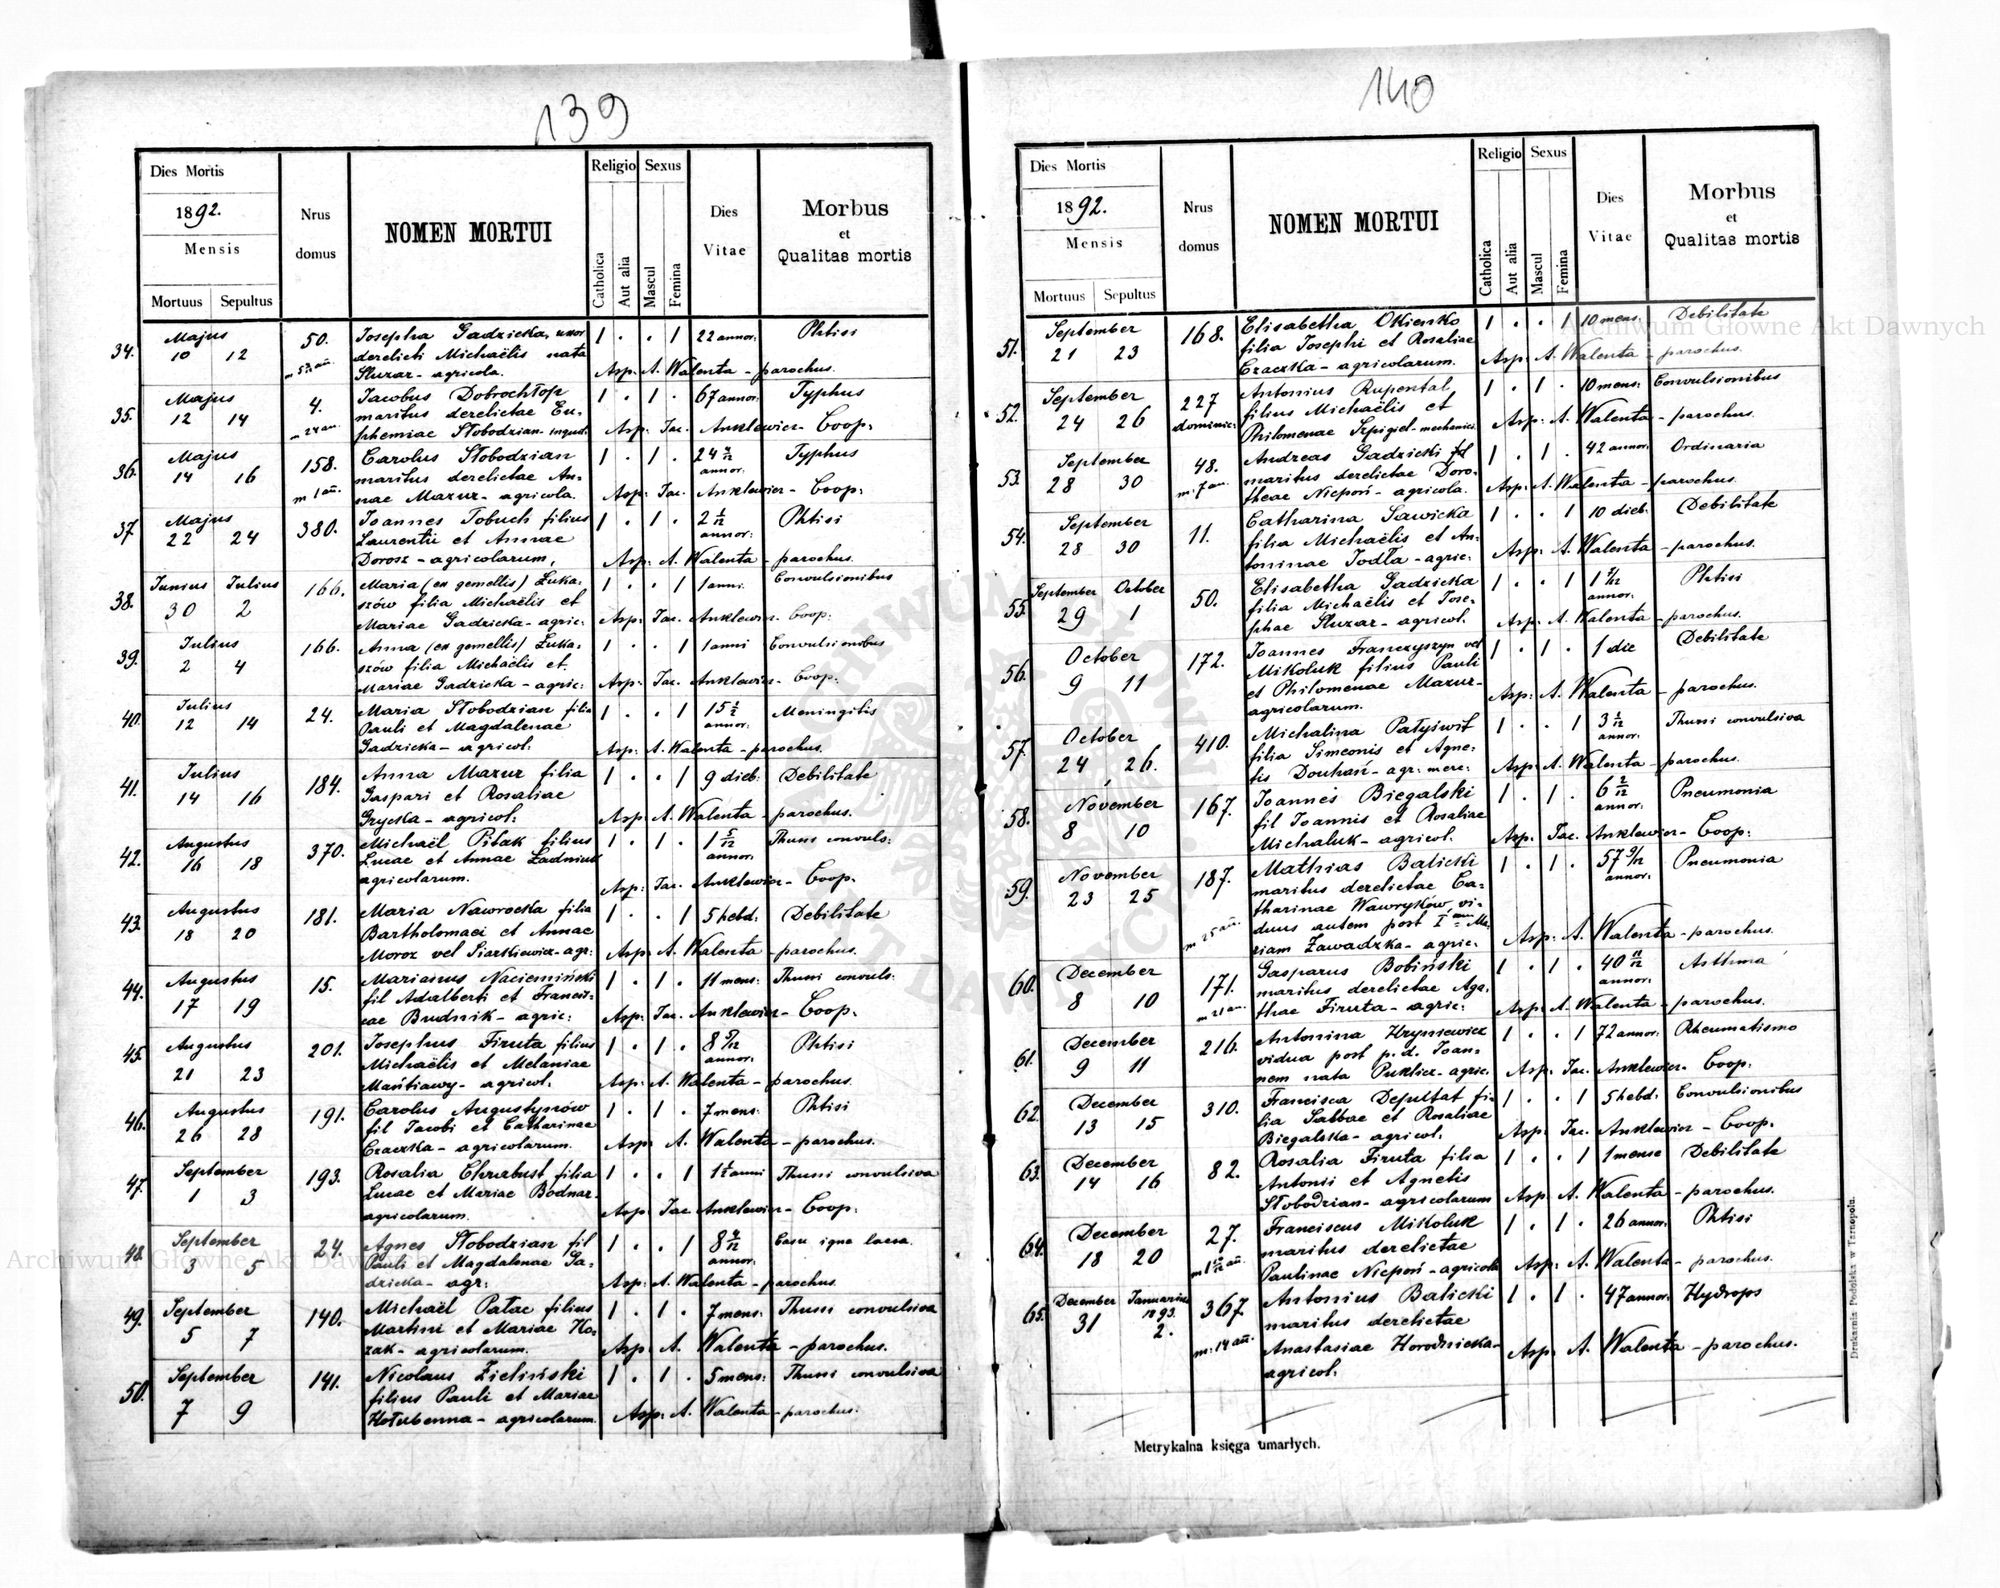 139
Dies Mortis
1892.
Mensis
Mortuus Sepultus
Nrus
domus
NOMEN MORTUI
Religio
Catholica
Aut alia
Sexus
Mascul
Femina
Dies
Vitae
Morbus
et
Qualitas mortis
34. Majus 50. Josepha Gadzicka, uxor 1 . . 1 22 annor: Phtisi
10 12 derelicti Michaëlis nata
Sluzar - agricola. Asp. A. Walenta - parochus.
35. Majus 4. Jacobus Dobrochłop 1 . 1 . 67 annor: Typhus
12 14 maritus derelictae Eu-
phemiae Słobodzian - inquil: Asp: Jac. Anklewicz - Coop:
36. Majus 158. Carolus Słobodzian 1 . 1 . 24 annor: Typhus
14 16 m 1 añ. maritus derelictae An-
nae Mazur - agricola. Asp: Jac. Anklewicz - Coop:
37 Majus 380. Joannes Tobuch filius 1 . 1 . 2 1/12 annor: Phtisi
22 24 Laurentii et Annae
Dorosz - agricolarum, Asp: A. Walenta - parochus.
38. Junius Julius 166. Maria (ex gemellis) Łuka- 1 . . 1 1 anni. Convulsionibus
30 2 szów filia Michaëlis et
Mariae Gadzicka - agric: Asp: Jac. Anklewicz - Coop:
39. Julius 166. Anna (ex gemellis) Łuka- 1 . . 1 1 anni Convulsionibus
2 4 szów filia Michaëlis et
Mariae Gadzicka - agric: Asp: Jac. Anklewicz - Coop:
40. Julius 24. Maria Słobodzian filia 1 . . 1 15 annor: Meningitis
12 14 Pauli et Magdalenae
Gadzicka - agricol: Asp: A. Walenta - parochus.
41. Julius 184. Anna Mazur filia 1 . . 1 9 dieb: Debilitate
14 16 Gaspari et Rosaliae
Grycka - agricol: Asp: A. Walenta - parochus.
42. Augustus 370. Michaël Pitak filius 1 . 1 . 1 5/12 annor. Thussi convuls:
16 18 Lucae et Annae Ładniuk
agricolarum. Asp: Jac. Anklewicz - Coop.
43. Augustus 181. Maria Nawrocka filia 1 . . 1 5 hebd: Debilitate
18 20 Bartholomaei et Annae
Moroz vel Siartkiewicz - agr: Asp: A. Walenta - parochus.
44. Augustus 15. Marianus Naciemiński 1 . 1 . 11 mens: Thussi convuls:
17 19 fil Adalberti et Francis-
cae Budnik - agric: Asp: Jac. Anklewicz - Coop.
45. Augustus 201. Josephus Firuta filius 1 . 1 . 8 5/12 annor. Phtisi
21 23 Michaëlis et Melaniae
agricol. Asp: A. Walenta - parochus.
46. Augustus 191. Carolus Augustynów 1 . 1 . 7 mens: Phtisi
26 28 fil Jacobi et Catharinae
Czaczka - agricolarum. Asp: A. Walenta - parochus.
47. September 193. Rosalia Chrabust filia 1 . . 1 1 anni Thussi convulsiva
1 3 Lucae et Mariae Bodnar -
agricolarum. Asp: Jac Anklewicz - Coop:
48. September 24. Agnes Słobodzian fil 1 . . 1 8 annor: Casu igne laesa.
3 5 Pauli et Magdalenae Ga-
dzicka - agr: Asp: A. Walenta - parochus.
49. September 140. Michaël Pałac filius 1 . 1 . 7 mens: Thussi convulsiva
5 7 Martini et Mariae Ko-
zak - agricolarum. Asp: A. Walenta - parochus.
50. September 141. Nicolaus Zieliński 1 . 1 . 5 mens: Thussi convulsiva
7 9 filius Pauli et Mariae
Hołubenna - agricolarum. Asp: A. Walenta - parochus.
140
Dies Mortis
1892.
Mensis
Mortuus Sepultus
Nrus
domus
NOMEN MORTUI
Religio
Catholica
Aut alia
Sexus
Mascul
Femina
Dies
Vitae
Morbus
et
Qualitas mortis
51. September 168. Elisabetha Okieńko 1 . . 1 10 mens: Debilitate
21 23 filia Josephi et Rosaliae
Czaczka - agricolarum. Asp: A. Walenta - parochus.
52. September 227 Antonius Rupental 1 . 1 . 10 mens: Convulsionibus
24 26 dominic: filius Michaëlis et
Philomenae Szpigiel - mechanici Asp: A. Walenta - parochus.
53. September 48. Andreas Gadzicki 1 . 1 . 42 annor: Ordinaria
28 30 m. 7 an. maritus derelictae Doro-
theae Niepoń - agricola. Asp: A. Walenta - parochus.
54. September 11. Catharina Sawicka 1 . . 1 10 dieb: Debilitate
28 30 filia Michaëlis et An-
toninae Jodła - agric: Asp: A. Walenta - parochus.
55. September October 50. Elisabetha Gadzicka 1 . . 1 1 annor: Phtisi
29 1 filia Michaëlis et Jose-
phae Sluzar - agricol. Asp: A. Walenta - parochus.
56. October 172. Joannes Franczyszyn vel 1 . 1 . 1 die Debilitate
9 11 Mikoluk filius Pauli
et Philomenae Mazur - Asp: A. Walenta - parochus.
agricolarum.
57. October 410. Michalina Patyświt 1 . . 1 3 annor. Thussi convulsiva
24 26. filia Simeonis et Agne-
tis Douhań - agr: merc: Asp: A. Walenta - parochus.
58. November 167. Joannes Biegalski 1 . 1 . 6 2/12 annor: Pneumonia
8 10 fil Joannis et Rosaliae
Michaluk - agricol. Asp: Jac. Anklewicz - Coop:
59. November 187. Mathias Balicki 1 . 1 . 57 9/12 annor: Pneumonia
23 25 maritus derelictae Ca-
tharinae Wawryków, vi-
m 25 añ. duus autem post I Ma-
riam Zawadzka - agric. Asp: A. Walenta - parochus.
60. December 171. Gasparus Bobiński 1 . 1 . 40 11/12 annor: Asthma
8 10 m 21 an. maritus derelictae Aga-
thae Firuta - agric: Asp: A. Walenta - parochus.
61. December 216. Antonina Hryniewicz 1 . . 1 72 annor: Rheumatismo
9 11 vidua post p. d. Joan-
nem nata Puklicz - agric. Asp: Jac. Anklewicz - Coop:
62. December 310. Francisca Deputat fi- 1 . . 1 5 hebd: Convulsionibus
13 15 lia Sabbae et Rosaliae
Biegalska - agricol. Asp: Jac: Anklewicz - Coop.
63. December 82. Rosalia Firuta filia 1 . . 1 1 mense Debilitate
14 16 Antonii et Agnetis
Słobodzian - agricolarum Asp: A. Walenta - parochus.
64. December 27. Franciscus Mikoluk 1 . 1 . 26 annor: Phtisi
18 20 maritus derelictae
Paulinae Niepoń - agricola Asp: A. Walenta - parochus.
65. December Januarius 1893. 367. Antonius Balicki 1 . 1 . 47 annor: Hydrops
31 2. m. 14 añ. maritus derelictae
Anastasiae Horodnicka - Asp: A. Walenta - parochus.
agricol.
Metrykalna księga umarłych.
Drukarnia Podolska w Tarnopolu.
Archiwum Główne Akt Dawnych
Archiwum Główne Akt Dawnych